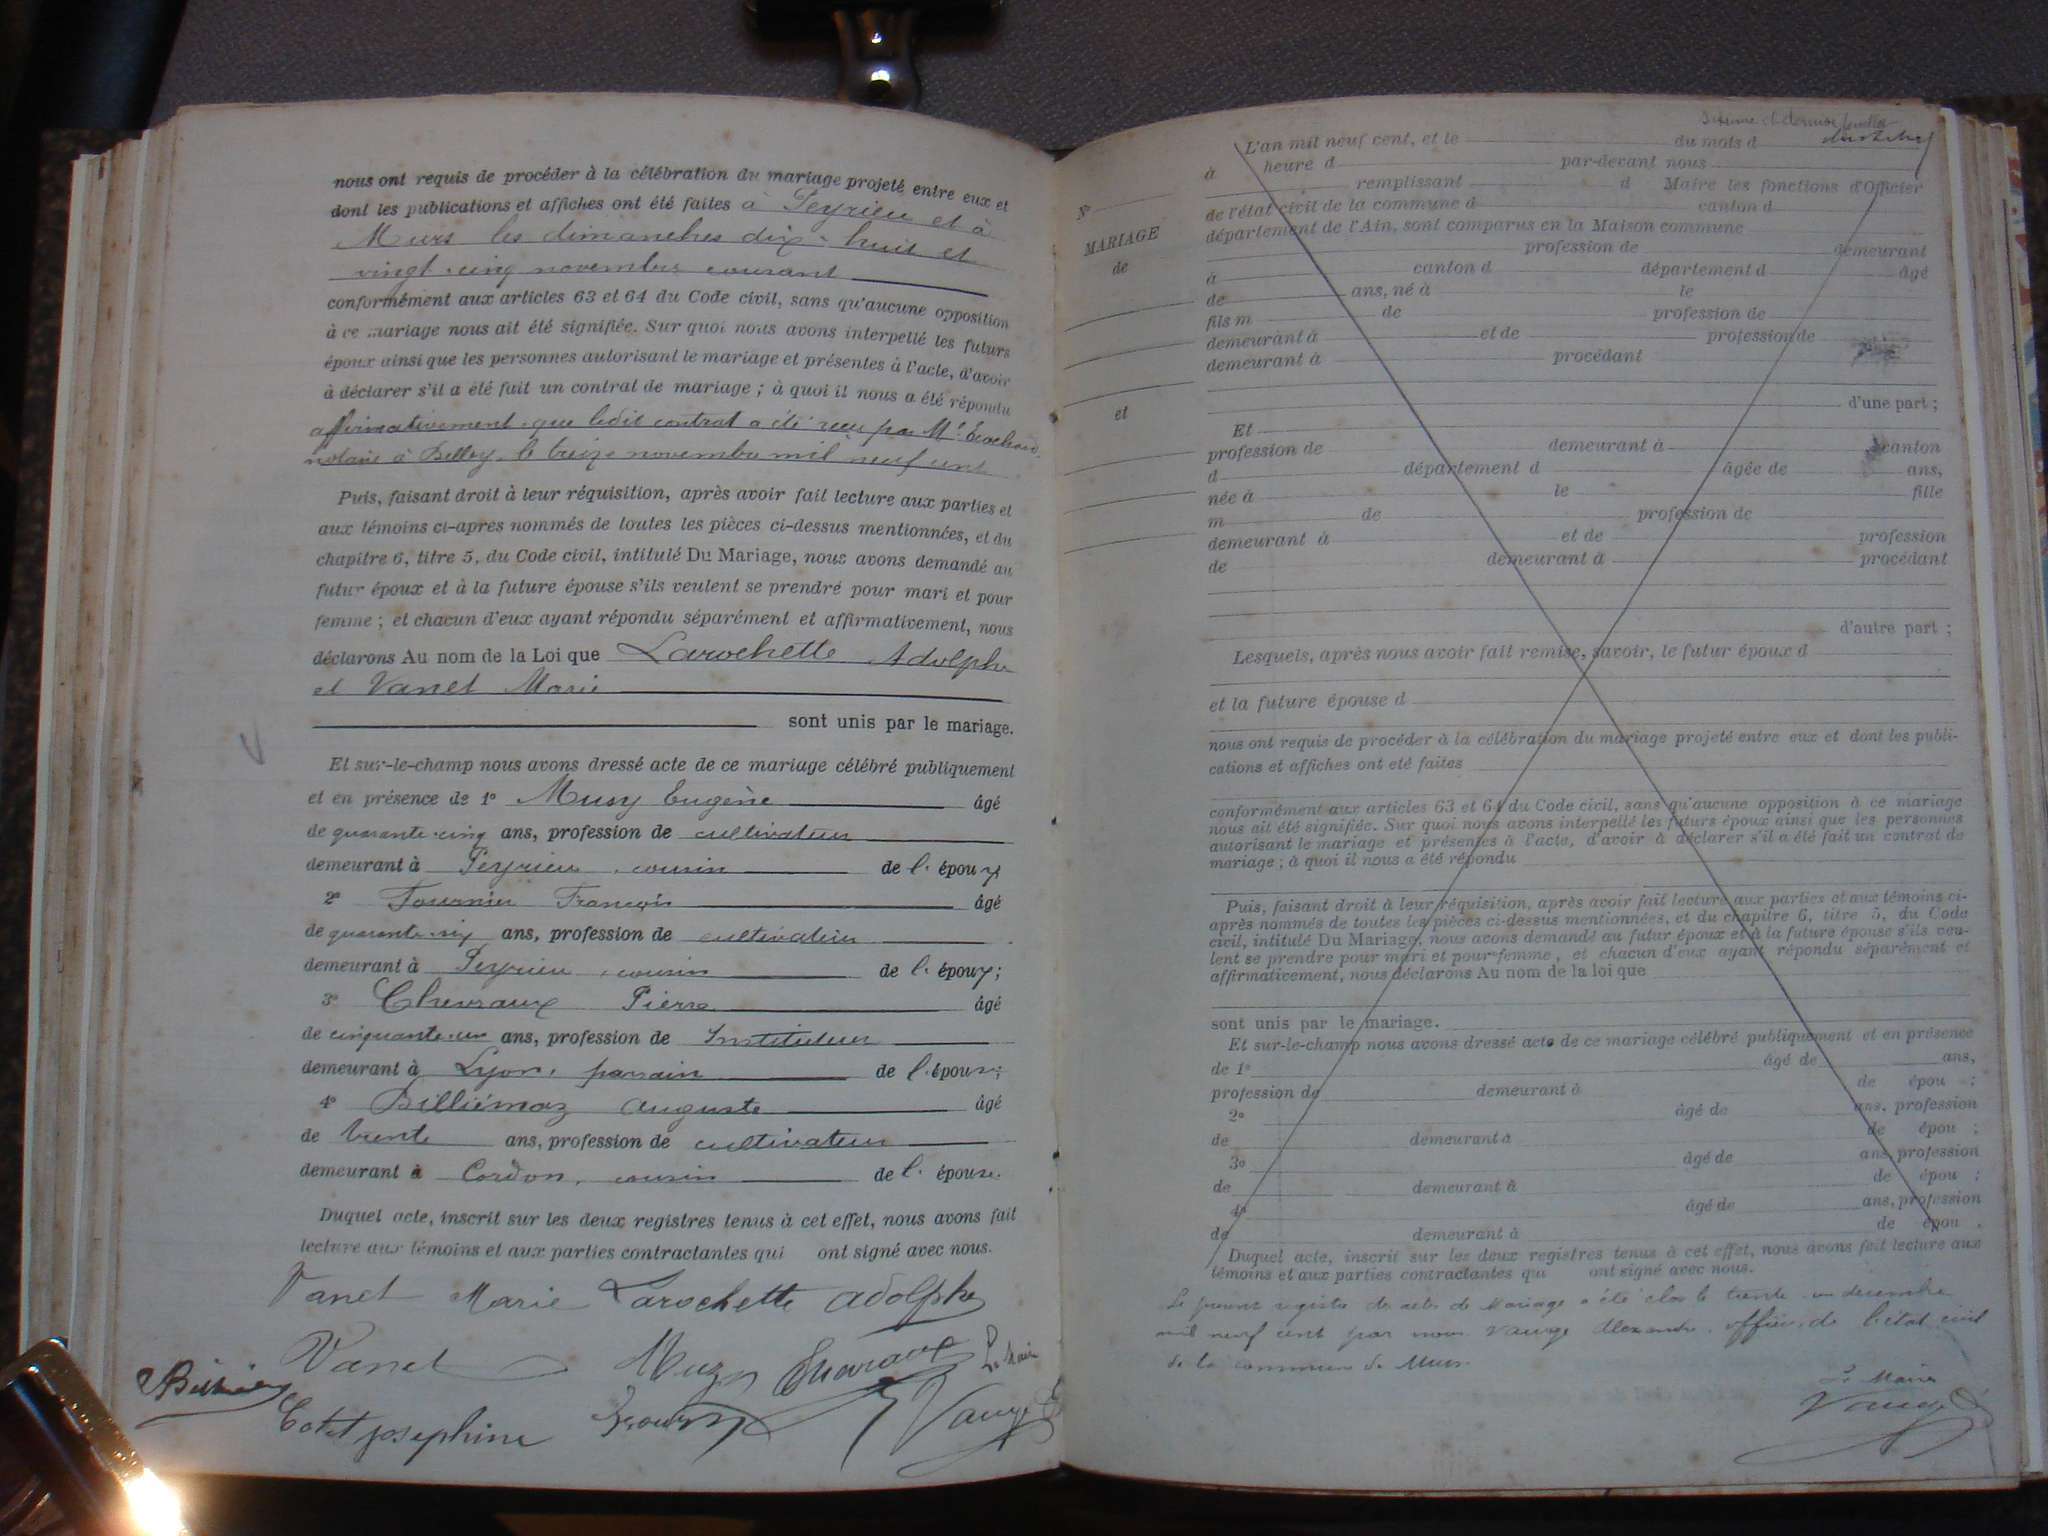 nous ont requis de procéder à la célébration du mariage projeté entre eux et
dont les publications et affiches ont été faites à Peyrieu et à
Murs les dimanches dix-huit et
vingt-cinq novembre courant
conformément aux articles 63 et 64 du Code civil, sans qu'aucune opposition
à ce mariage nous ait été signifiée. Sur quoi nous avons interpellé les futurs
époux ainsi que les personnes autorisant le mariage et présentes à l'acte, d'avoir
à déclarer s'il a été fait un contrat de mariage ; à quoi il nous a été répondu
affirmativement que ledit contrat a été reçu par Me
notaire à Belley, le treize novembre mil neuf cent
Puis, faisant droit à leur réquisition, après avoir fait lecture aux parties et
aux témoins ci-après nommés de toutes les pièces ci-dessus mentionnées, et du
chapitre 6, titre 5, du Code civil, intitulé Du Mariage, nous avons demandé au
futur époux et à la future épouse s'ils veulent se prendre pour mari et pour
femme ; et chacun d'eux ayant répondu séparément et affirmativement, nous
déclarons Au nom de la Loi que Larochette Adolphe
et Vanet Marie
sont unis par le mariage.
Et sur-le-champ nous avons dressé acte de ce mariage célébré publiquement
et en présence de 1° Musy Eugène âgé
de quarante-cinq ans, profession de cultivateur
demeurant à Peyrieu, cousin de l'époux
2° Fournier François âgé
de quarante-six ans, profession de cultivateur
demeurant à Peyrieu, cousin de l'époux;
3° Chevraux Pierre âgé
de cinquante-un ans, profession de Instituteur
demeurant à Lyon, parrain de l'épouse;
4° Billiémaz Auguste âgé
de trente ans, profession de cultivateur
demeurant à Cordon, cousin de l'épouse.
Duquel acte, inscrit sur les deux registres tenus à cet effet, nous avons fait
lecture aux témoins et aux parties contractantes qui ont signé avec nous.
Vanet Marie Larochette Adolphe
Vanet Muzy Chevraux Le Maire
Cotet Josephine Vauge
L'an mil neuf cent, et le du mois d
à heure d par-devant nous
remplissant d Maire les fonctions d'Officier
de l'état civil de la commune d canton d
N°
département de l'Ain, sont comparus en la Maison commune
MARIAGE
profession de demeurant
de
à canton d département d âgé
de ans, né à le
fils m de profession de
demeurant à et de profession de
demeurant à procédant
d'une part ;
et
Et
profession de demeurant à canton
d département d âgée de ans,
née à le fille
m de profession de
demeurant à et de profession
de demeurant à procédant
d'autre part ;
Lesquels, après nous avoir fait remise, savoir, le futur époux d
et la future épouse d
nous ont requis de procéder à la célébration du mariage projeté entre eux et dont les publi-
cations et affiches ont été faites
conformément aux articles 63 et 64 du Code civil, sans qu'aucune opposition à ce mariage
nous ait été signifiée. Sur quoi nous avons interpellé les futurs époux ainsi que les personnes
autorisant le mariage et présentes à l'acte, d'avoir à déclarer s'il a été fait un contrat de
mariage ; à quoi il nous a été répondu
Puis, faisant droit à leur réquisition, après avoir fait lecture aux parties et aux témoins ci-
après nommés de toutes les pièces ci-dessus mentionnées, et du chapitre 6, titre 5, du Code
civil, intitulé Du Mariage, nous avons demandé au futur époux et à la future épouse s'ils veu-
lent se prendre pour mari et pour femme, et chacun d'eux ayant répondu séparément et
affirmativement, nous déclarons Au nom de la loi que
sont unis par le mariage.
Et sur-le-champ nous avons dressé acte de ce mariage célébré publiquement et en présence
de 1° âgé de ans,
profession de demeurant à de épou ;
2° âgé de ans, profession
de demeurant à de épou ;
3° âgé de ans, profession
de demeurant à de épou ;
4° âgé de ans, profession
de demeurant à de épou .
Duquel acte, inscrit sur les deux registres tenus à cet effet, nous avons fait lecture aux
témoins et aux parties contractantes qui ont signé avec nous.
Le présent registre des actes de Mariage a été clos le trente-un décembre
mil neuf cent par nous Vauge Alexandre, officier de l'état civil
de la commune de Murs
Le Maire
Vauge